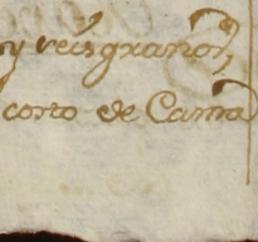 y reis granos,
costo de Cama